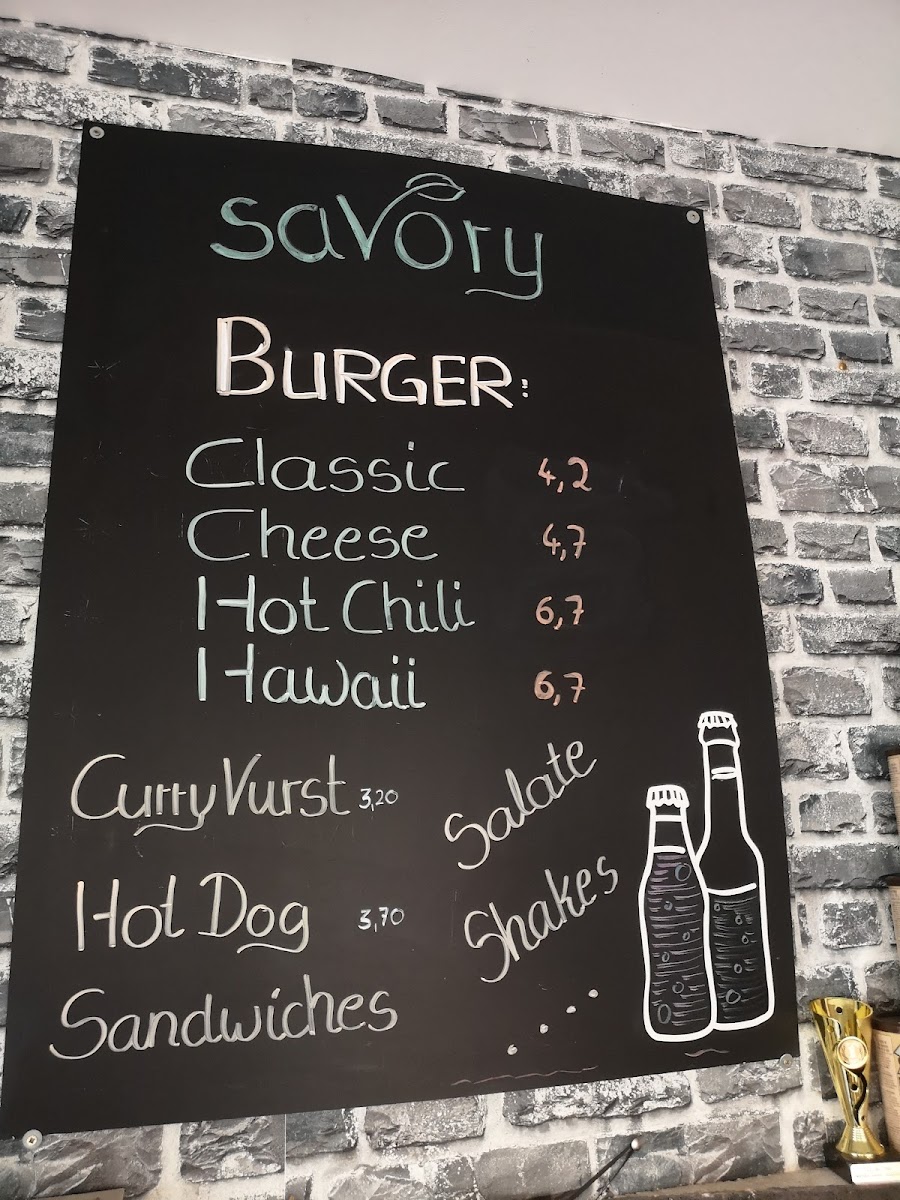 savory
BURGER:
Classic 4,2
Cheese 4,7
Hot Chili 6,7
Hawaii 6,7
CurryVurst 3,20
Salate
Hot Dog 3,70
Shakes
Sandwiches
....